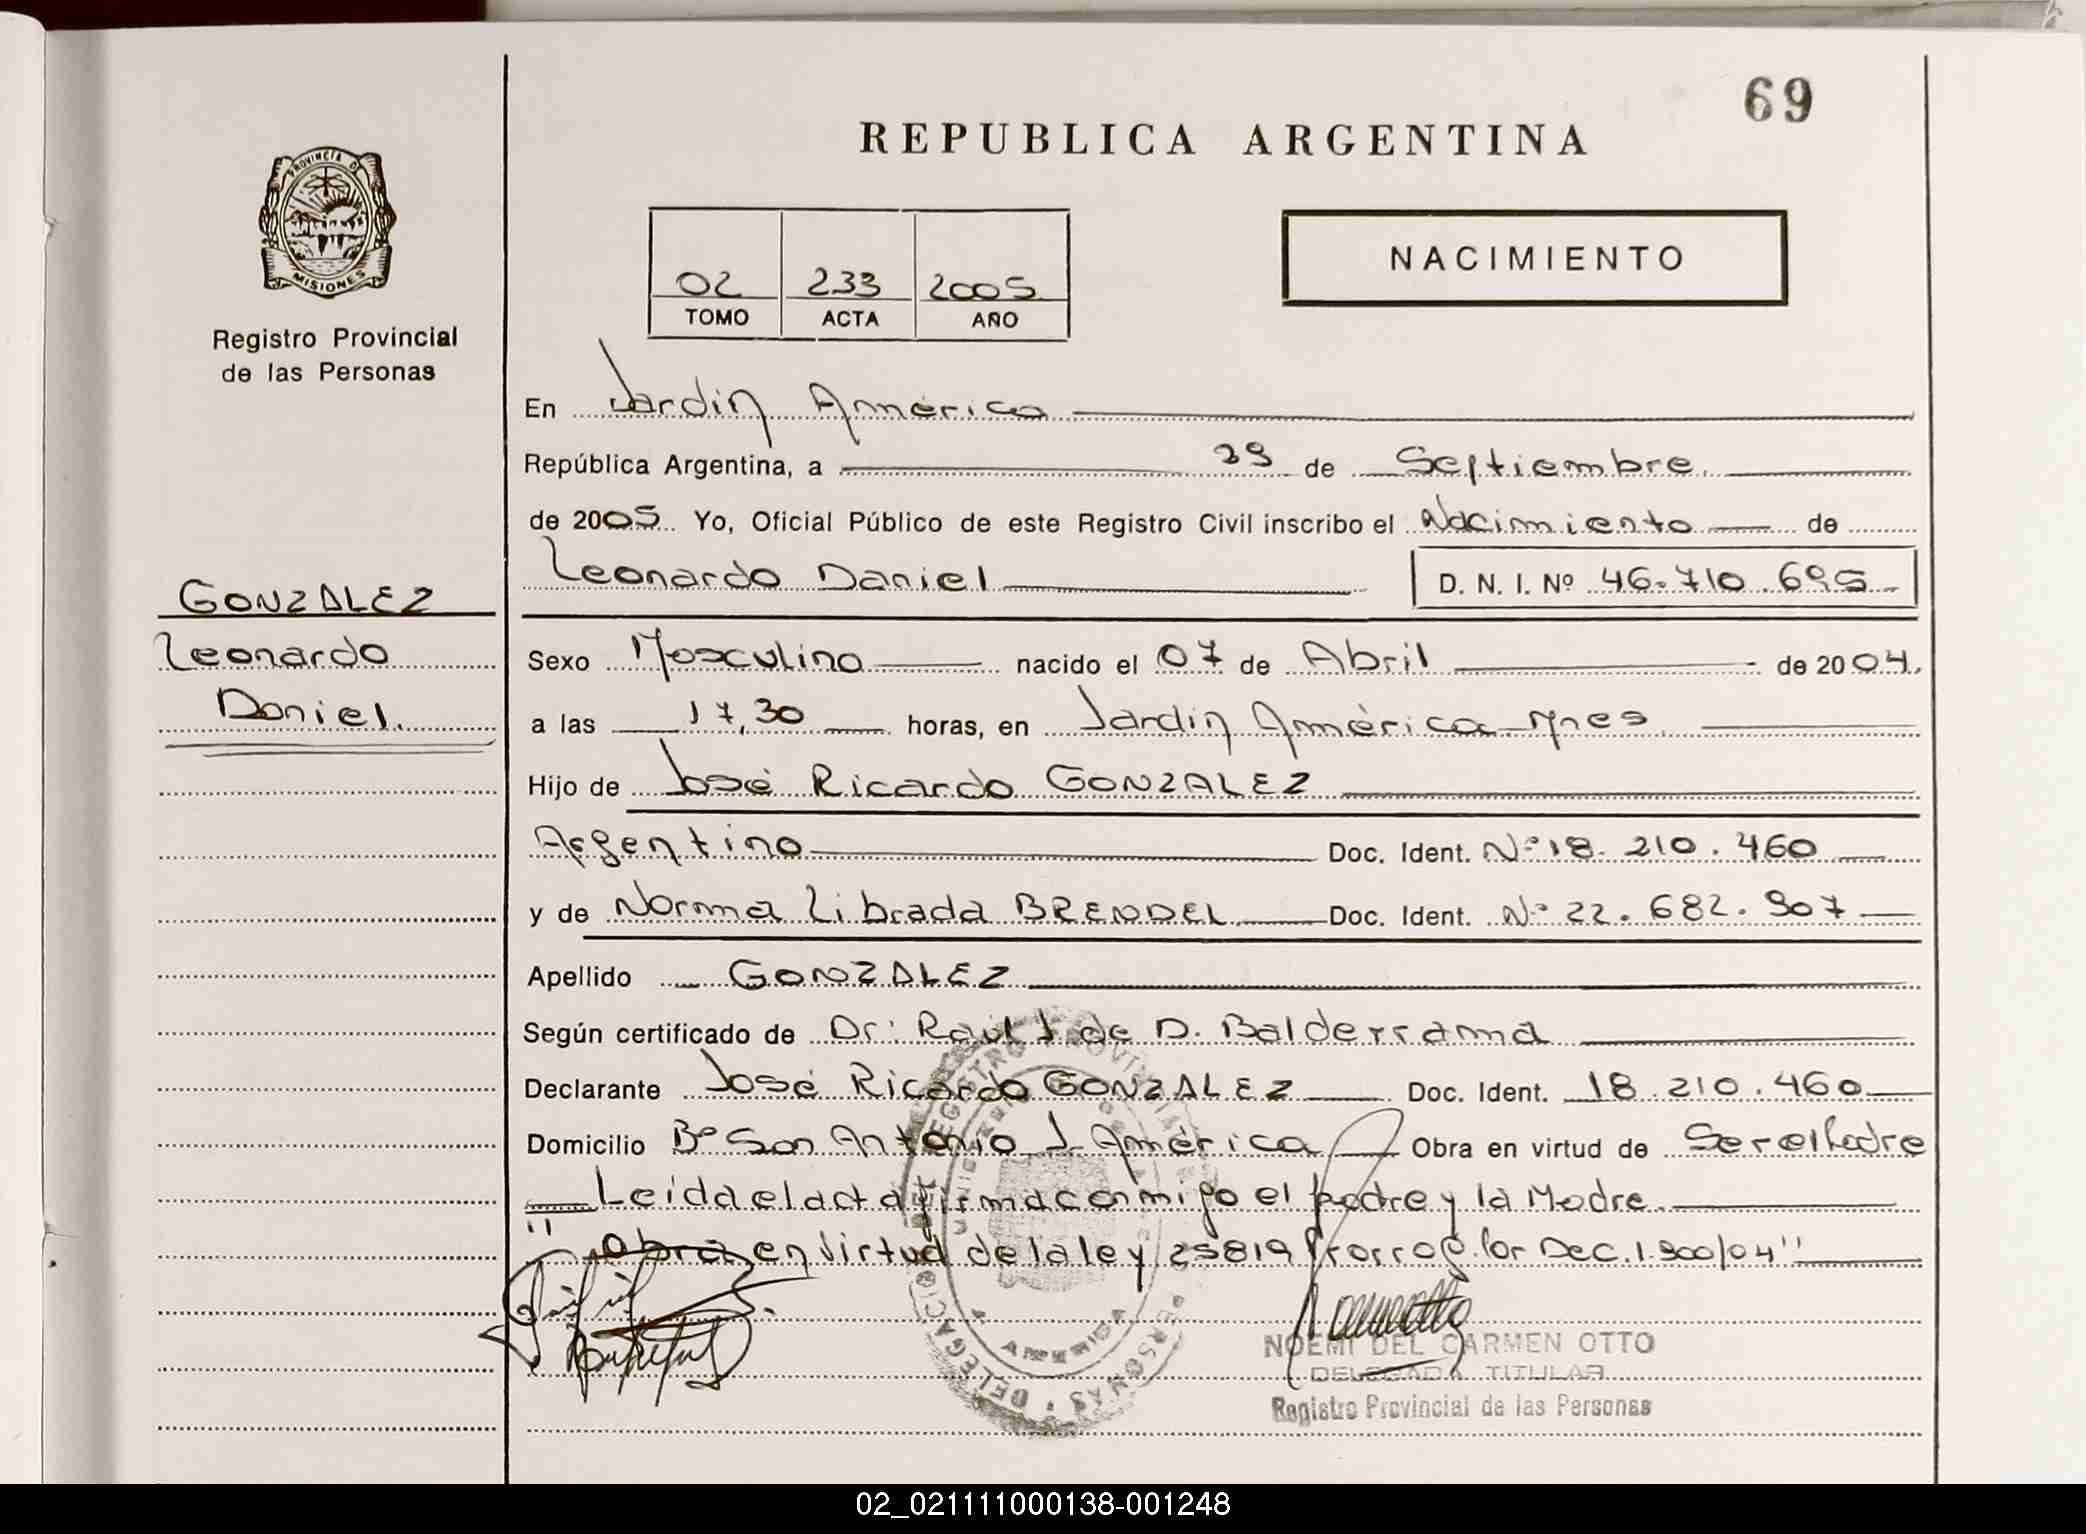 69
REPUBLICA ARGENTINA
PROVINCIA DE
MISIONES
Registro Provincial
de las Personas
NACIMIENTO
02 233 2005
TOMO ACTA AÑO
En Jardín América
República Argentina, a 29 de Septiembre
de 2005 Yo, Oficial Público de este Registro Civil inscribo el Nacimiento de
Leonardo Daniel D. N. I. Nº 46.710.695
GONZALEZ
Leonardo
Daniel.
Sexo Masculino nacido el 07 de Abril de 2004.
a las 17,30 horas, en Jardín América Mnes
Hijo de José Ricardo GONZALEZ
Argentino Doc. Ident. Nº 18.210.460
y de Norma Librada BRENDEL Doc. Ident. Nº 22.682.907
Apellido GONZALEZ
Según certificado de Dr: Raúl J. de D. Balderrama
Declarante José Ricardo GONZALEZ Doc. Ident. 18.210.460
Domicilio Bº San Antonio J. América Obra en virtud de Ser el Padre
Leida el acta firma conmigo el padre y la Madre
"Obra en virtud de la ley 25819 Prorrog. Por Dec. 1.900/04"
NOEMI DEL CARMEN OTTO
DELEGADA TITULAR
Registro Provincial de las Personas
02_021111000138-001248